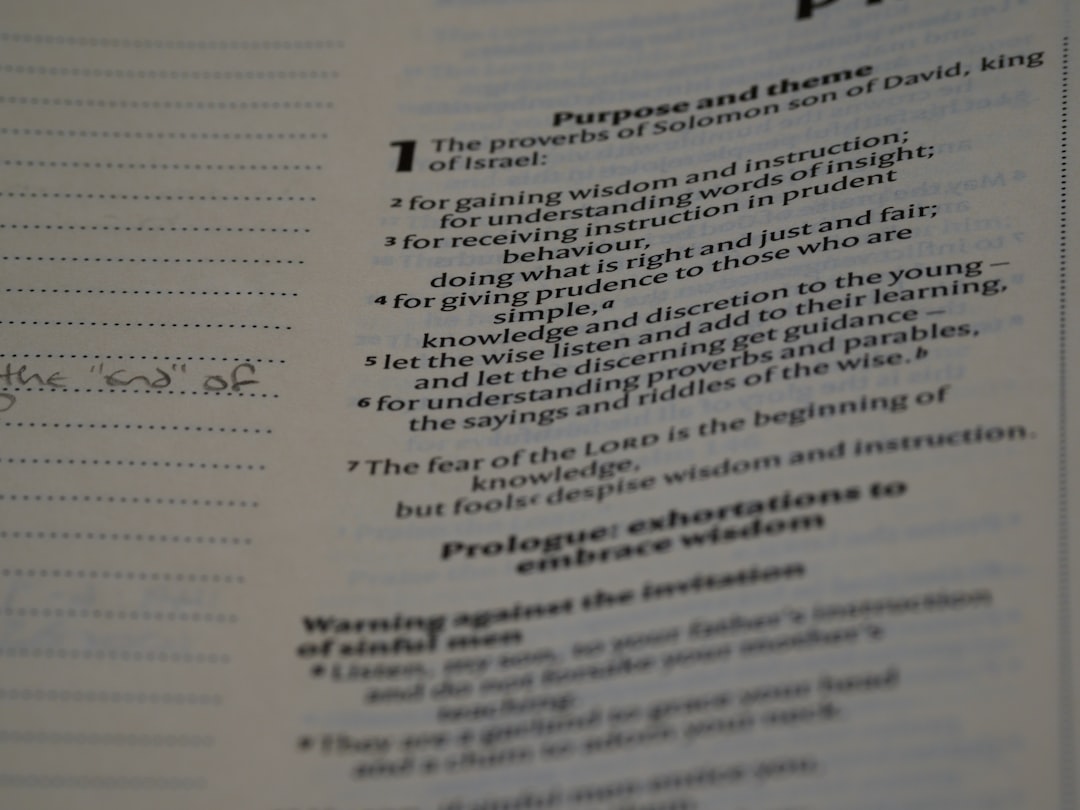 the "end" of
Purpose and theme
1 The proverbs of Solomon son of David, king
of Israel:
2 for gaining wisdom and instruction;
for understanding words of insight;
3 for receiving instruction in prudent
behaviour,
doing what is right and just and fair;
4 for giving prudence to those who are
simple,a
knowledge and discretion to the young –
5 let the wise listen and add to their learning,
and let the discerning get guidance –
6 for understanding proverbs and parables,
the sayings and riddles of the wise.b
7 The fear of the LORD is the beginning of
knowledge,
but foolsc despise wisdom and instruction.
Prologue: exhortations to
embrace wisdom
Warning against the invitation
of sinful men
8 Listen, my son, to your father's instruction
and do not forsake your mother's
teaching.
9 They are a garland to grace your head
and a chain to adorn your neck.